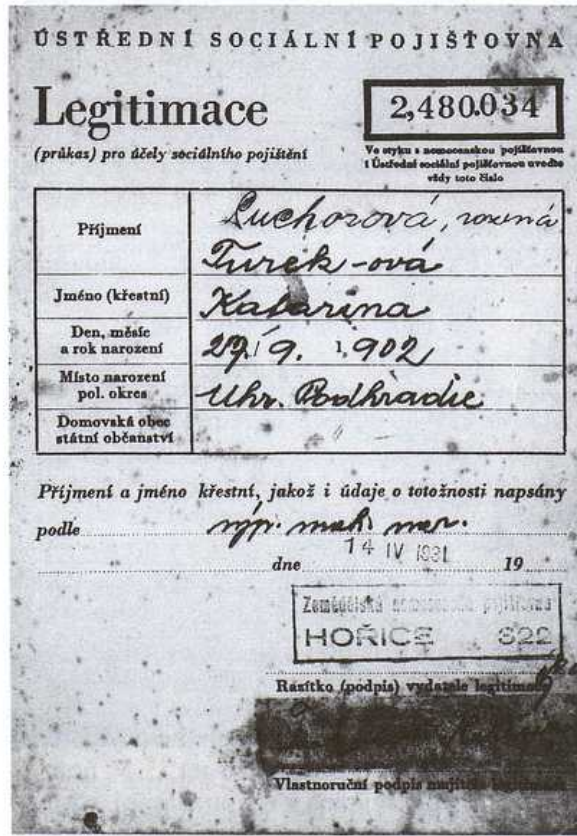 ÚSTŘEDNÍ SOCIÁLNÍ POJIŠŤOVNA
Legitimace
2,480.034
(průkaz) pro účely sociálního pojištění
Ve styku s nemocenskou pojišťovnou
i Ústřední sociální pojišťovnou uveďte
vždy toto číslo
Příjmení
Suchorová, rozená
Turek-ová
Jméno (křestní)
Katarina
Den, měsíc
a rok narození
29/9. 1,902
Místo narození
pol. okres
Uhr. Podhradie
Domovská obec
státní občanství
Příjmení a jméno křestní, jakož i údaje o totožnosti napsány
podle výp. nar.
14 IV 1931
dne 19
Zemědělská nemocenská pojišťovna
HOŘICE 322
Razítko (podpis) vydatele legitimace
Vlastnoruční podpis majitele legitimace